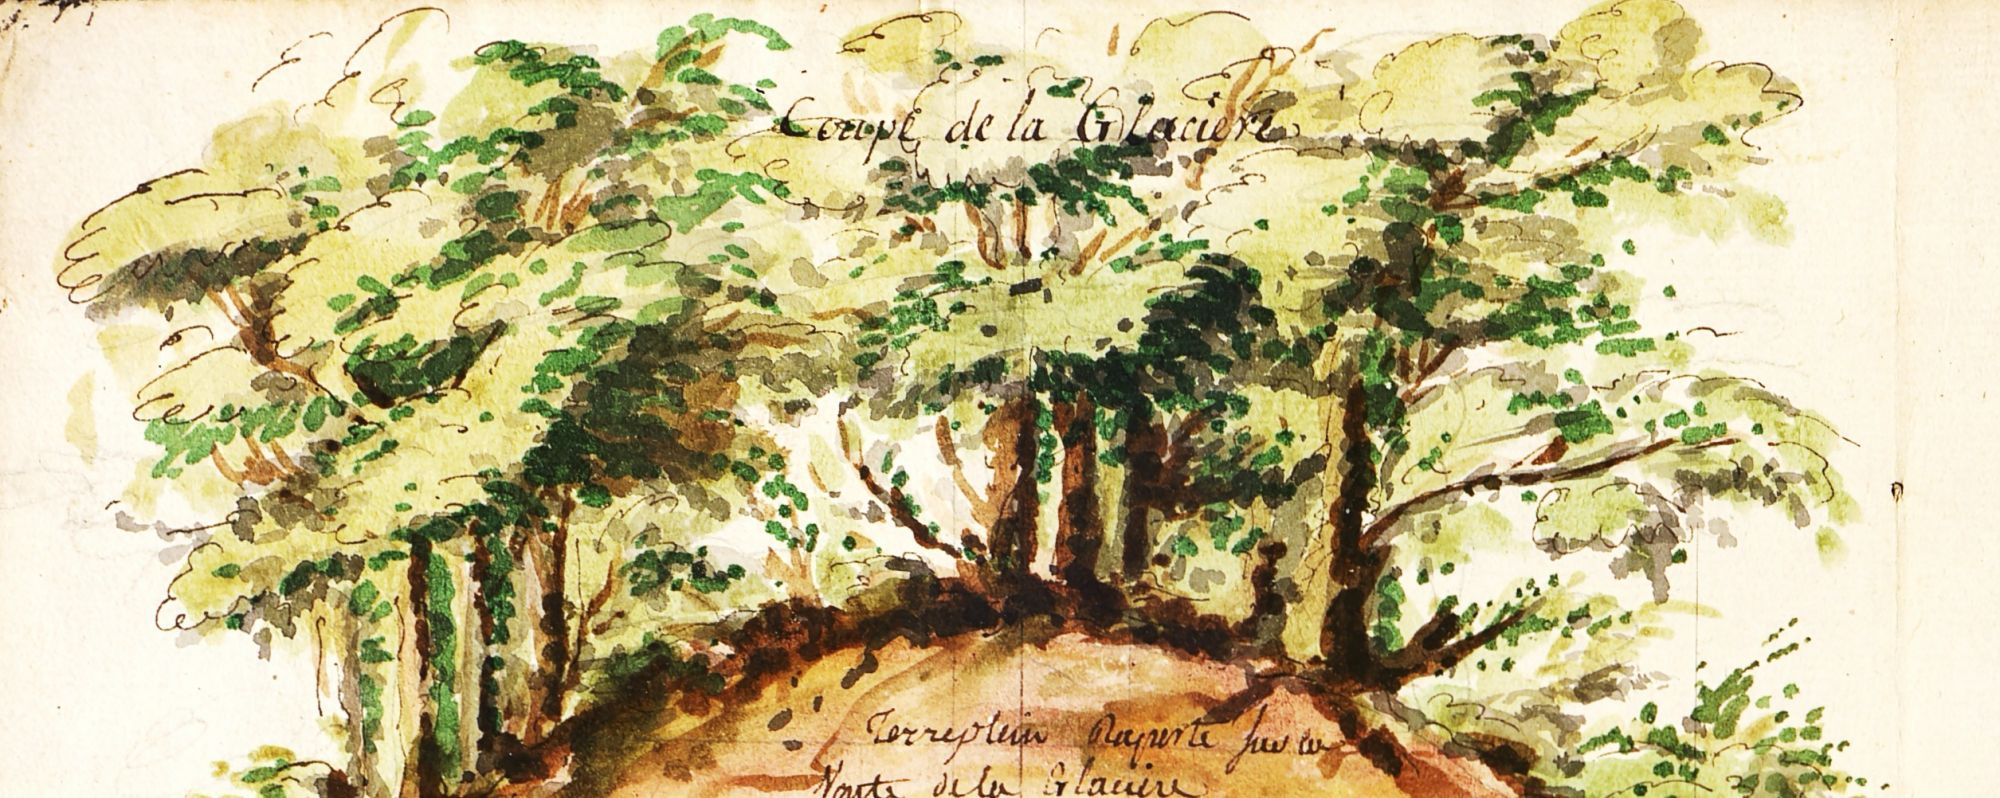 Coupe de la Glaciere
Terreplein Raporte sur la
Voute de la Glaciere